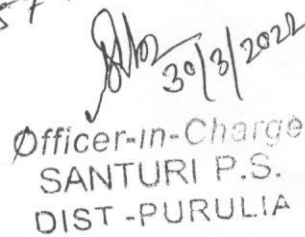 30/3/2022
Officer-in-Charge
SANTURI P.S.
DIST-PURULIA